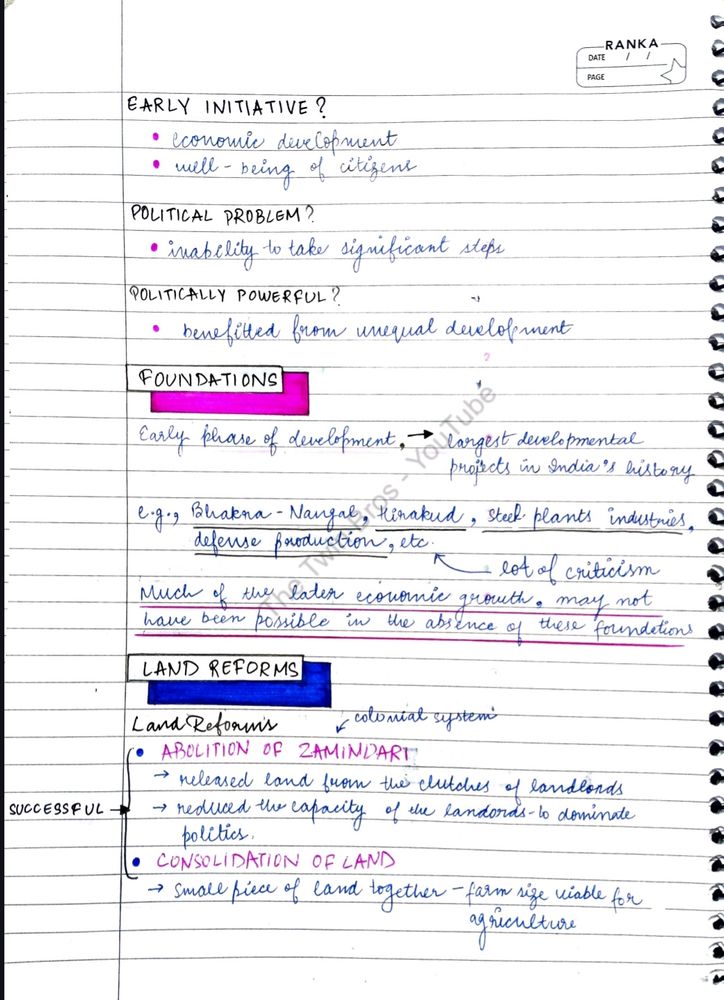 RANKA
DATE / /
PAGE
EARLY INITIATIVE?
• economic development
• well-being of citizens
POLITICAL PROBLEM?
• inability to take significant steps
POLITICALLY POWERFUL?
• benefitted from unequal development
FOUNDATIONS
Early phase of development, → largest developmental
projects in India's history
e.g., Bhakra-Nangal, Hirakud, Steel plants industries,
defense production, etc.
lot of criticism
Much of the later economic growth, may not
have been possible in the absence of these foundations
LAND REFORMS
Land Reforms
colonial system
• ABOLITION OF ZAMINDARI
→ released land from the clutches of landlords
SUCCESSFUL → → reduced the capacity of the landords to dominate
politics.
• CONSOLIDATION OF LAND
→ small piece of land together - farm size viable for
agriculture
The Twin Bros - YouTube